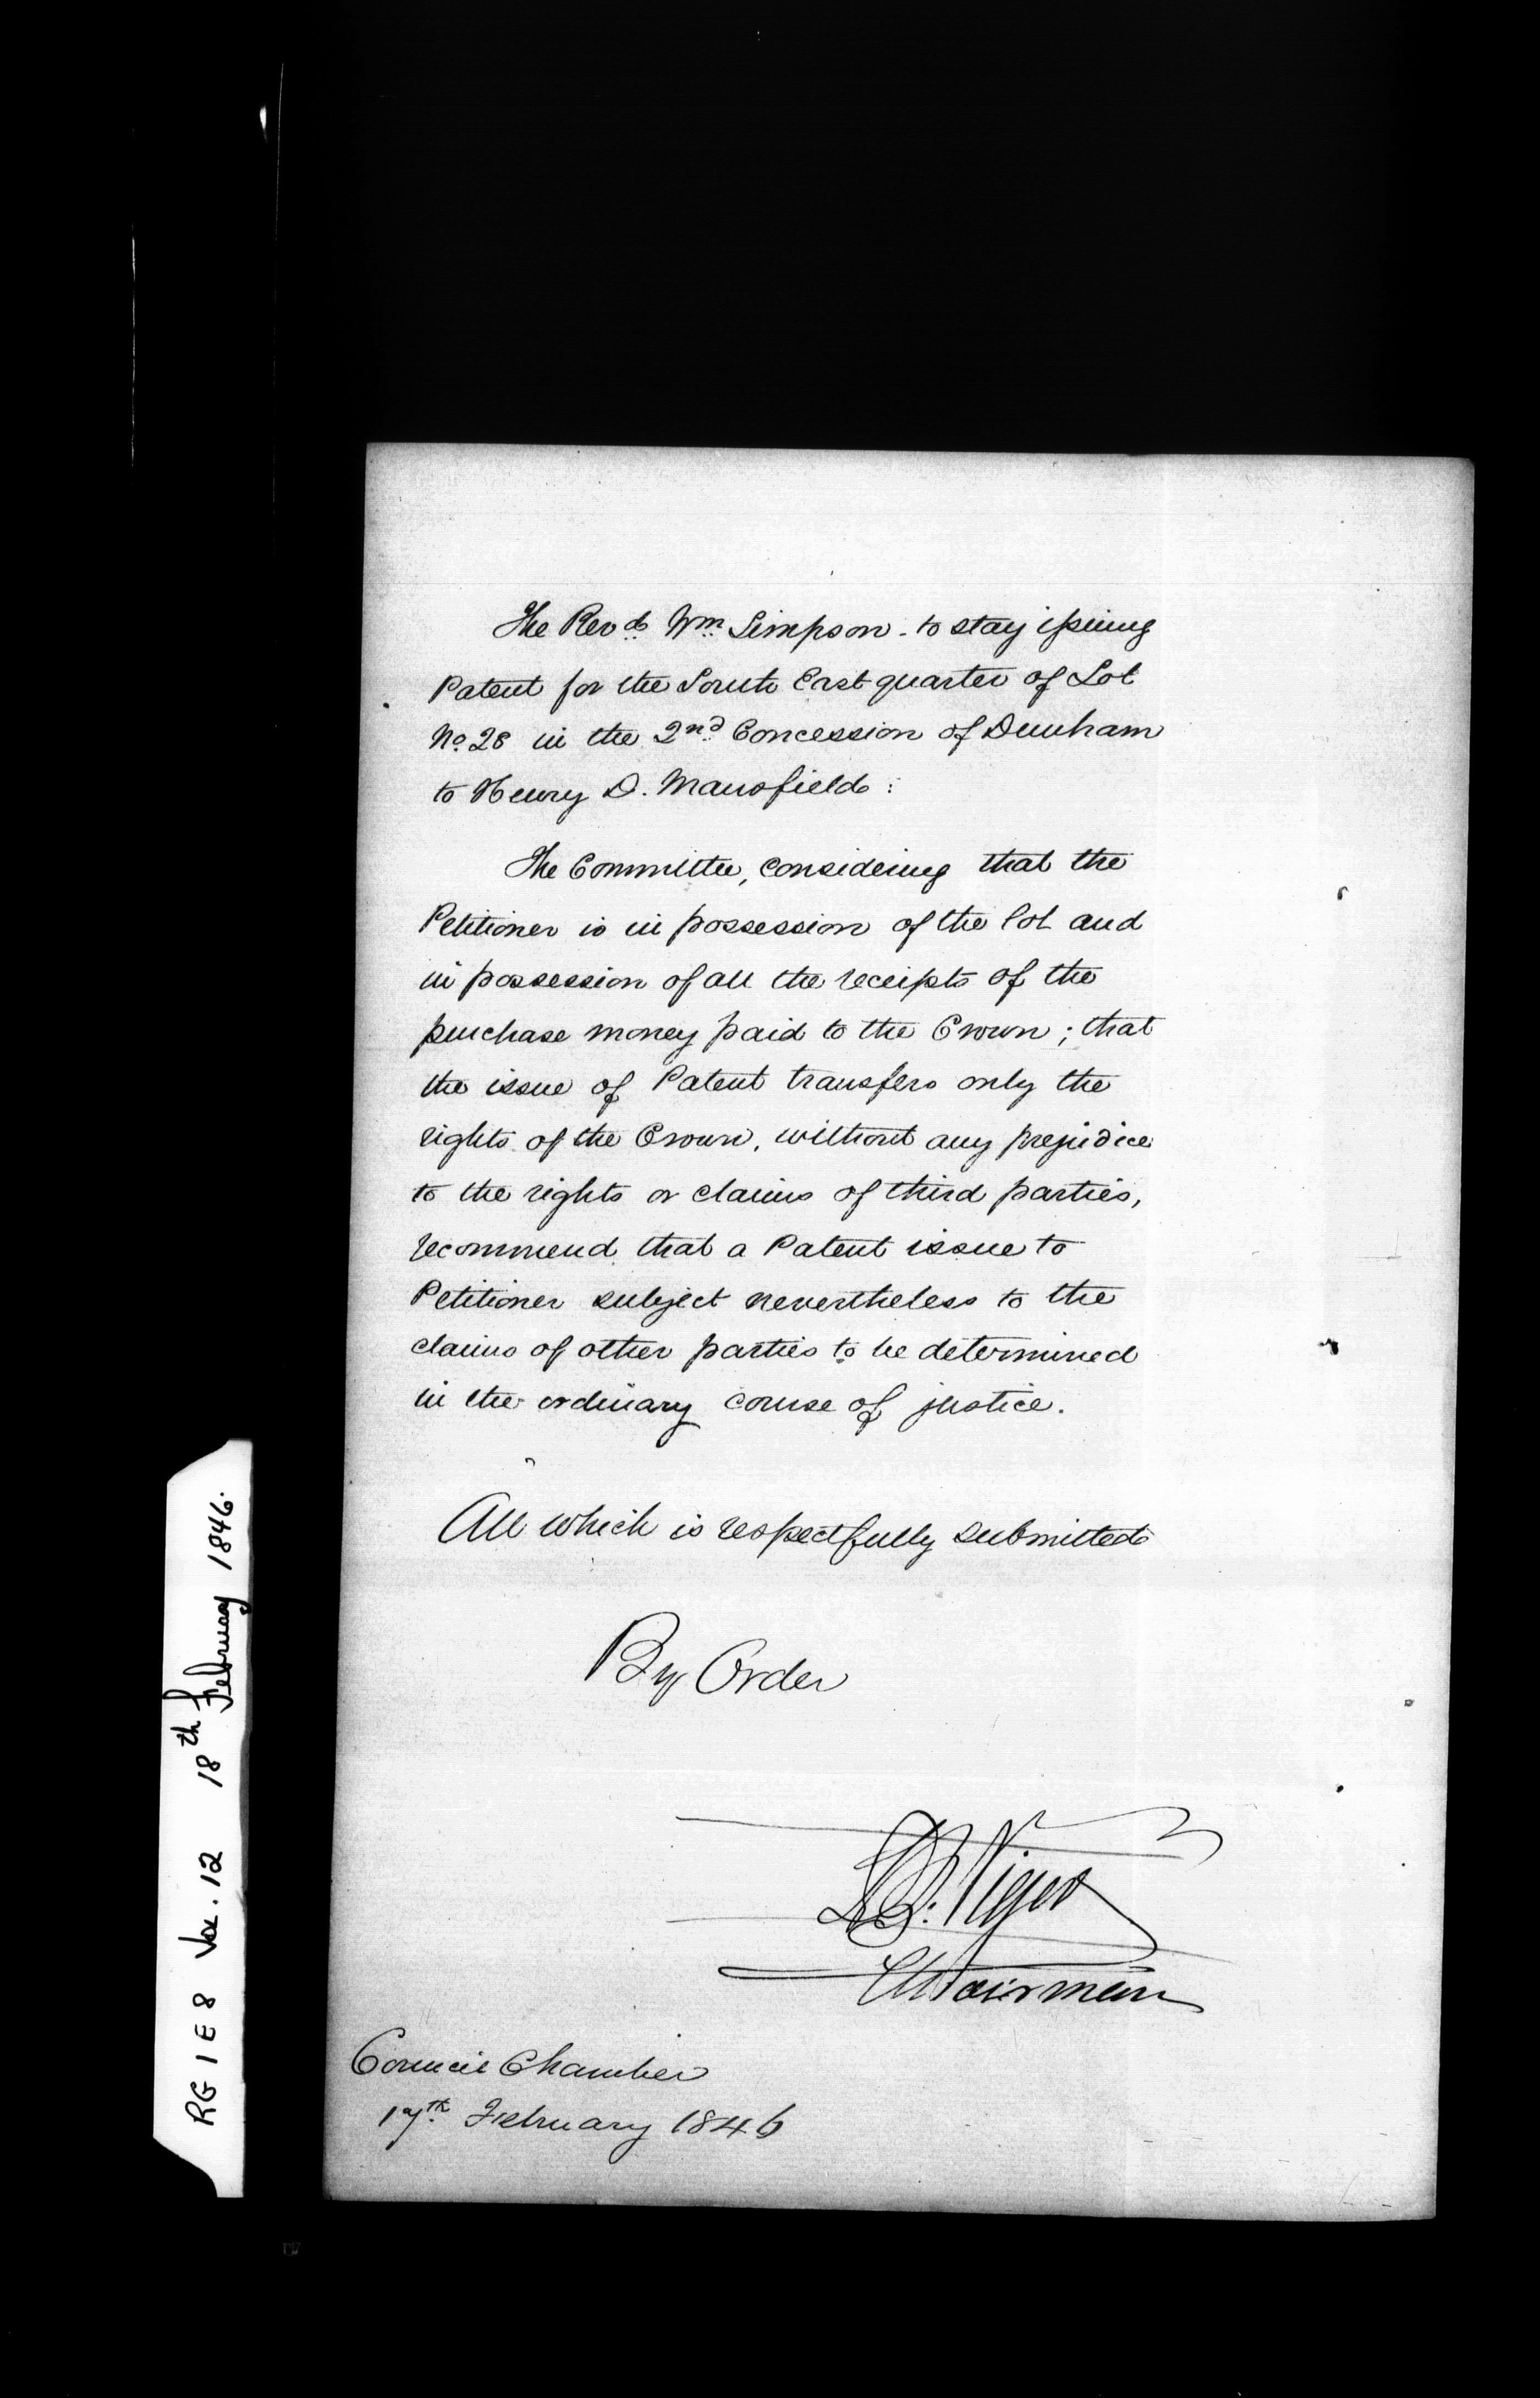 The Revd. Wm. Simpson - to stay issuing
Patent for the South East quarter of Lot
No. 28 in the 2nd. Concession of Dunham
to Henry D. Mansfield :
The Committee, considering that the
Petitioner is in possession of the lot and
in possession of all the receipts of the
purchase money paid to the Crown ; that
the issue of Patent transfers only the
rights of the Crown, without any prejudice
to the rights or claims of third parties,
recommend that a Patent issue to
Petitioner subject nevertheless to the
claims of other parties to be determined
in the ordinary course of justice.
All which is respectfully submitted
By Order
D. B. Viger
Chairman
Council Chamber
17th. February 1846
RG 1 E 8 Vol. 12 18th February 1846.